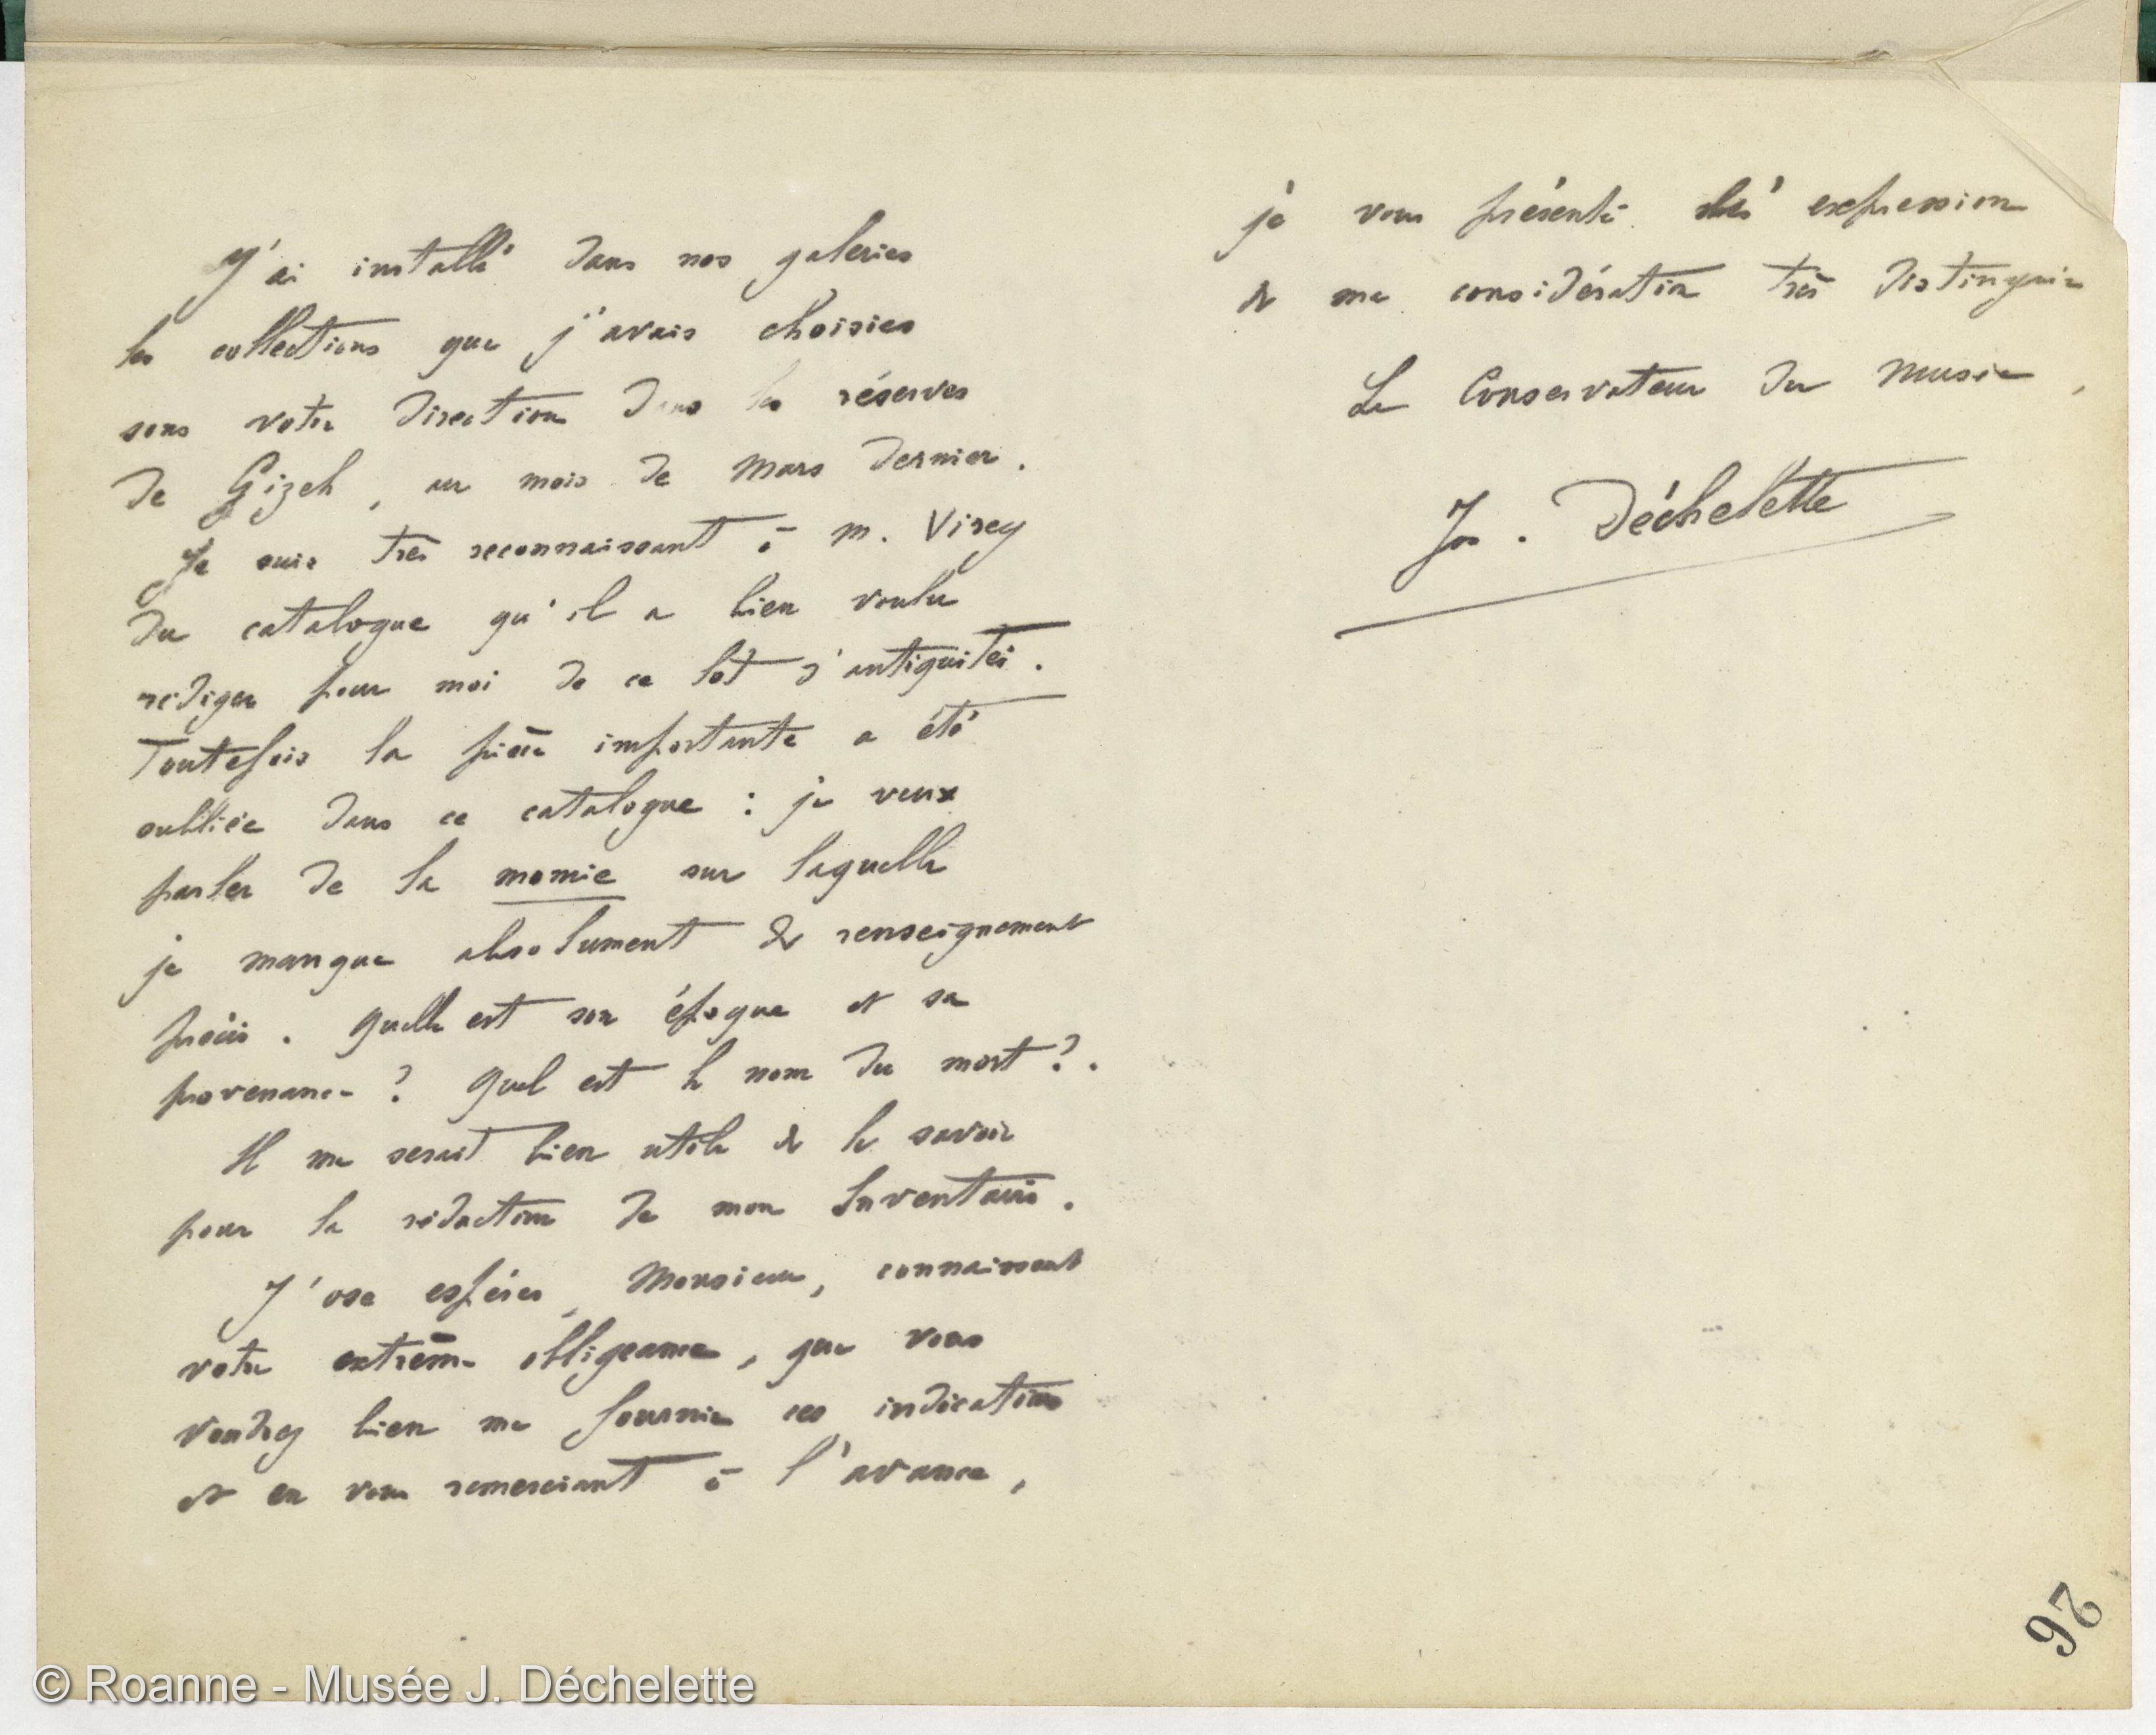 J'ai installé dans nos galeries
les collections que j'avais choisies
sous votre direction dans les réserves
de Gizeh, au mois de Mars dernier.
Je suis très reconnaissant à M. Virey
du catalogue qu'il a bien voulu
rédiger pour moi de ce lot d'antiquités.
Toutefois la pièce importante a été
oubliée dans ce catalogue : je veux
parler de la momie sur laquelle
je manque absolument de renseignement
précis. Quelle est son époque et sa
provenance ? Quel est le nom du mort ?.
Il me serait bien utile de le savoir
pour la rédaction de mon Inventaire.
J'ose espérer, Monsieur, connaissant
votre extrême obligeance, que vous
voudrez bien me fournir ces indications
et en vous remerciant à l'avance,
je vous présente expression
de ma considération très distinguée
Le Conservateur du Musée,
Jos. Déchelette
26
© Roanne - Musée J. Déchelette